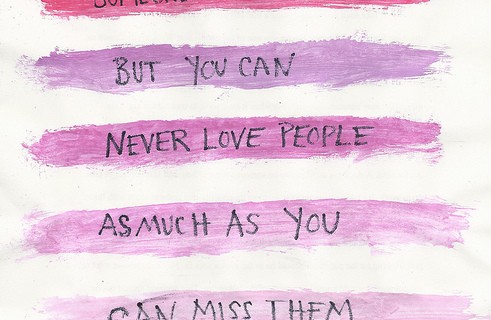 BUT YOU CAN
NEVER LOVE PEOPLE
AS MUCH AS YOU
CAN MISS THEM